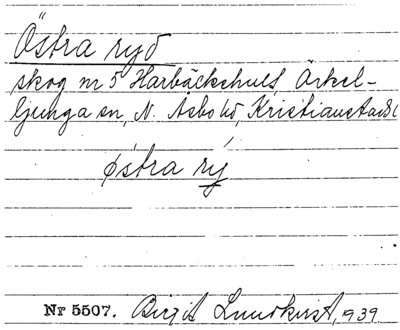 Östra ryd
skog nr 5 Harbäckshult, Örkel-
ljunga sn, N. Åsbo hd, Kristianstads l
østra rý
Nr 5507. Birgit Lundkvist, 1939